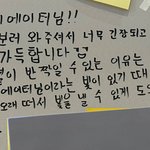 에이터님!!
와주셔서 너무 긴장되고
가득합니다
이 반짝일 수 있는 이유는
에이터님이라는 빛이 있기 때
오래 떠서 빛을 낼 수 있게 도